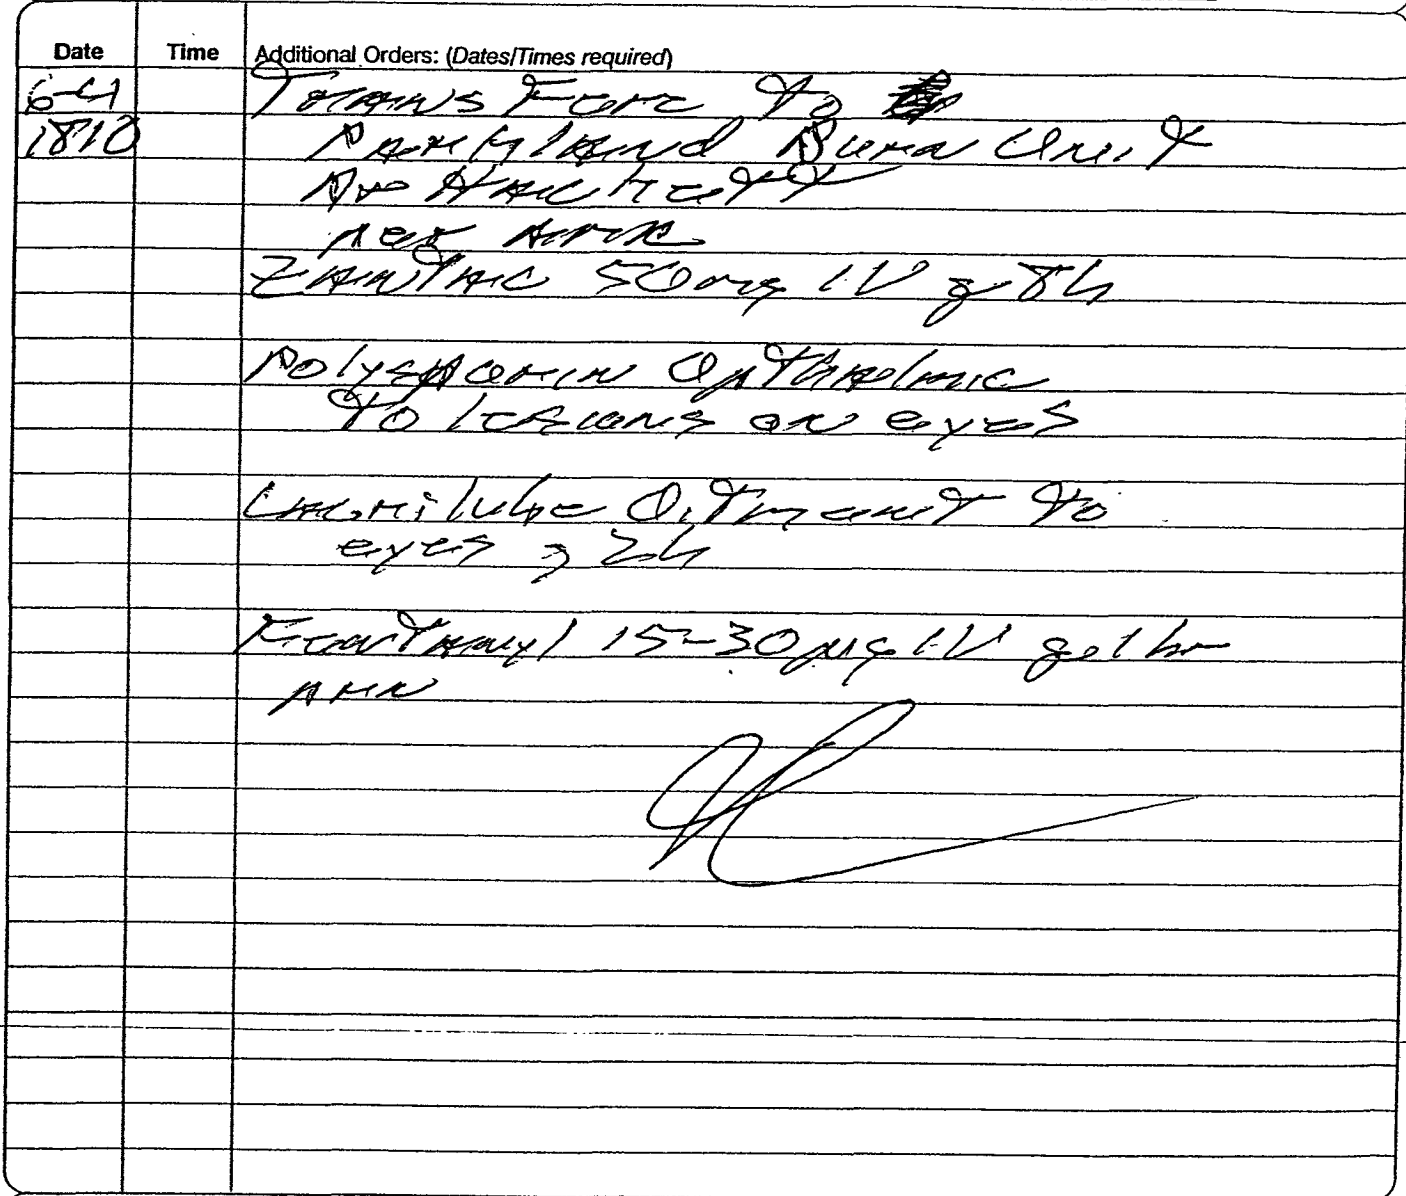 Date Time Additional Orders: (Dates/Times required)
6-4 Transfer to
1810 Parkland Burn Unit
Dr Hackett
per AMR
Zantac 50mg IV q 8h
Polysporin Opthalmic
to lesions on eyes
Lacrilube Oitment to
eyes q 2h
Fentanyl 15-30 µg IV q 1 hr
prn